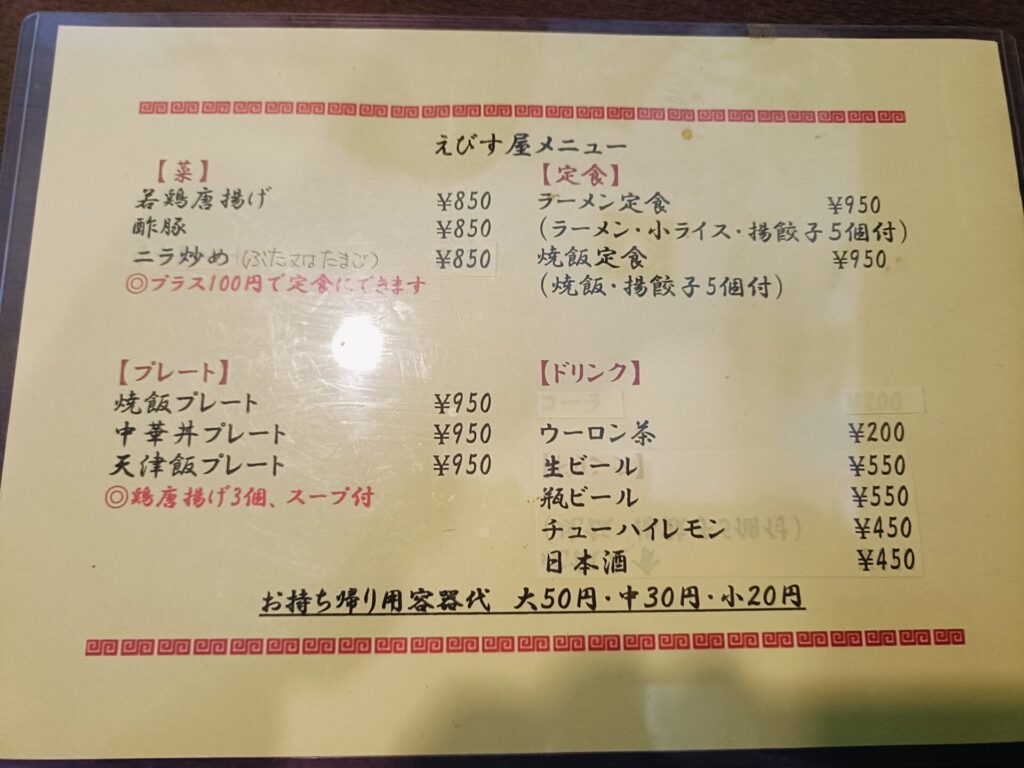 えびす屋メニュー
【菜】
若鶏唐揚げ ¥850
酢豚 ¥850
ニラ炒め（ぶた又はたまご） ¥850
◎プラス100円で定食にできます
【定食】
ラーメン定食 ¥950
(ラーメン・小ライス・揚餃子5個付)
焼飯定食 ¥950
(焼飯・揚餃子5個付)
【プレート】
焼飯プレート ¥950
中華丼プレート ¥950
天津飯プレート ¥950
◎鶏唐揚げ3個、スープ付
【ドリンク】
コーラ ¥200
ウーロン茶 ¥200
生ビール ¥550
瓶ビール ¥550
チューハイレモン ¥450
日本酒 ¥450
お持ち帰り用容器代 大50円・中30円・小20円